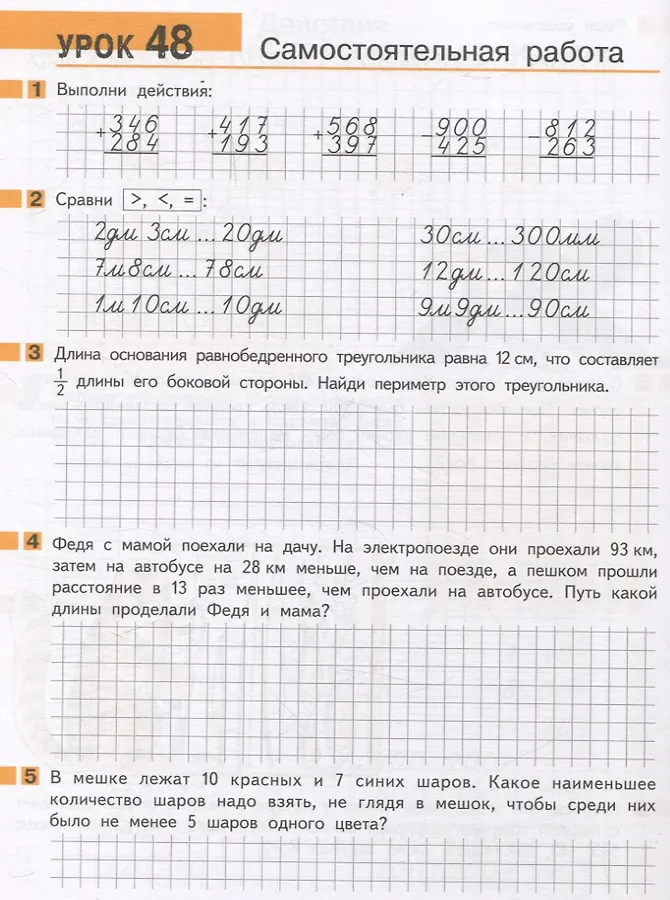 УРОК 48
Самостоятельная работа
1 Выполни действия:
+346 +417 +568 −900 −812
284 193 397 425 263
2 Сравни >, <, = :
2дм 3см ... 20дм 30см ... 300мм
7м8см ... 78см 12дм ... 120см
1м10см ... 10дм 9м9дм ... 90см
3 Длина основания равнобедренного треугольника равна 12 см, что составляет
1/2 длины его боковой стороны. Найди периметр этого треугольника.
4 Федя с мамой поехали на дачу. На электропоезде они проехали 93 км,
затем на автобусе на 28 км меньше, чем на поезде, а пешком прошли
расстояние в 13 раз меньшее, чем проехали на автобусе. Путь какой
длины проделали Федя и мама?
5 В мешке лежат 10 красных и 7 синих шаров. Какое наименьшее
количество шаров надо взять, не глядя в мешок, чтобы среди них
было не менее 5 шаров одного цвета?